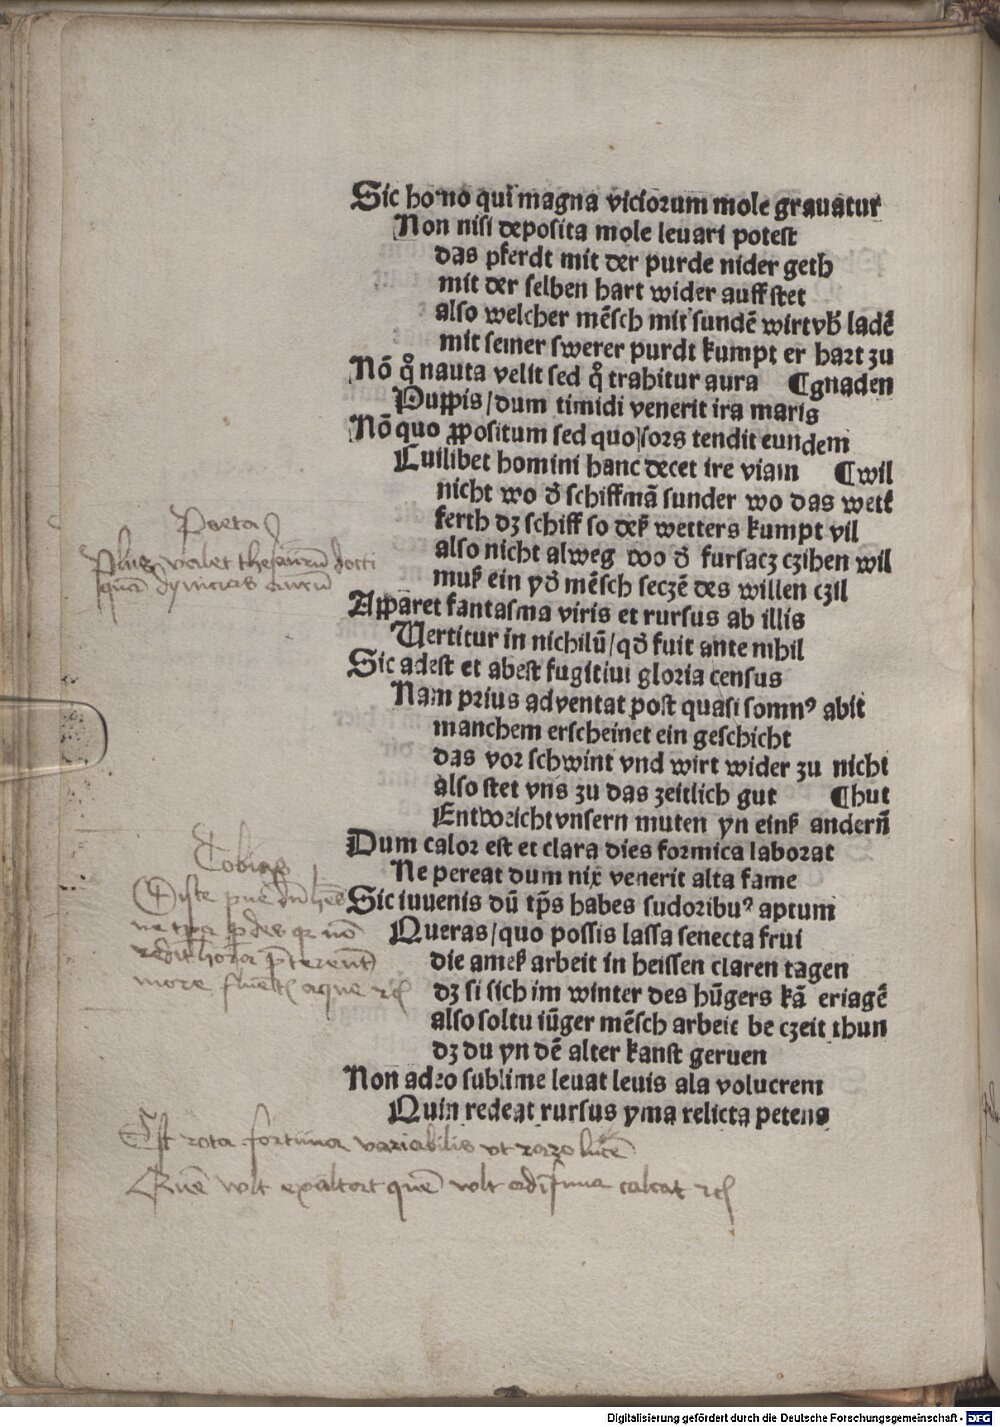 Sic homo qui magna viciorum mole grauatur
Non nisi deposita mole leuari potest
das pferdt mit der purde nider geth
mit der selben hart wider auff stet
also welcher mēsch mit sundē wirt vb̕ ladē
mit seiner swerer purdt kumpt er hart zu
Nō q̊ nauta velit sed q̊ trahitur aura ¶gnaden
Puppis/dum timidi venerit ira maris
Nō quo ꝓpositum sed quo sors tendit eundem
Cuilibet homini hanc decet ire viam ¶wil
nicht wo d̕ schiffmā sunder wo das wett
ferth dz schiff so der wetters kumpt vil
also nicht alweg wo d̕ fursacz czihen wil
muß ein yd̕ mēsch seczē des willen czil
Apparet fantasma viris et rursus ab illis
Vertitur in nichilū/qd̕ fuit ante nihil
Sic adest et abest fugitiui gloria census
Nam prius adventat post quasi somnꝰ abit
manchem erscheinet ein geschicht
das vor schwint vnd wirt wider zu nicht
also stet vns zu das zeitlich gut ¶hut
Entweicht vnsern muten yn einß andern̄
Dum calor est et clara dies formica laborat
Ne pereat dum nix venerit alta fame
Sic iuuenis dū tp̄s habes sudoribuꝰ aptum
Queras/quo possis lassa senecta frui
die ameß arbeit in heissen claren tagen
dz si sich im winter des hūgers kā eriagē
also soltu iūger mēsch arbeit be czeit thun
dz du yn dē alter kanst geruen
Non adeo sublime leuat leuis ala volucrem
Quin redeat rursus yma relicta petens
Poeta
Plus valet thesaurū docti
quā dyuicias auri
Tobias
Disce puer dū
redit hora p̄tereunt
more fluent aque ⁊c̄
Est rota fortuna variabilis vt rota lune
Quē vult exaltat quē vult calcat ⁊c̄
Digitalisierung gefördert durch die Deutsche Forschungsgemeinschaft - DFG